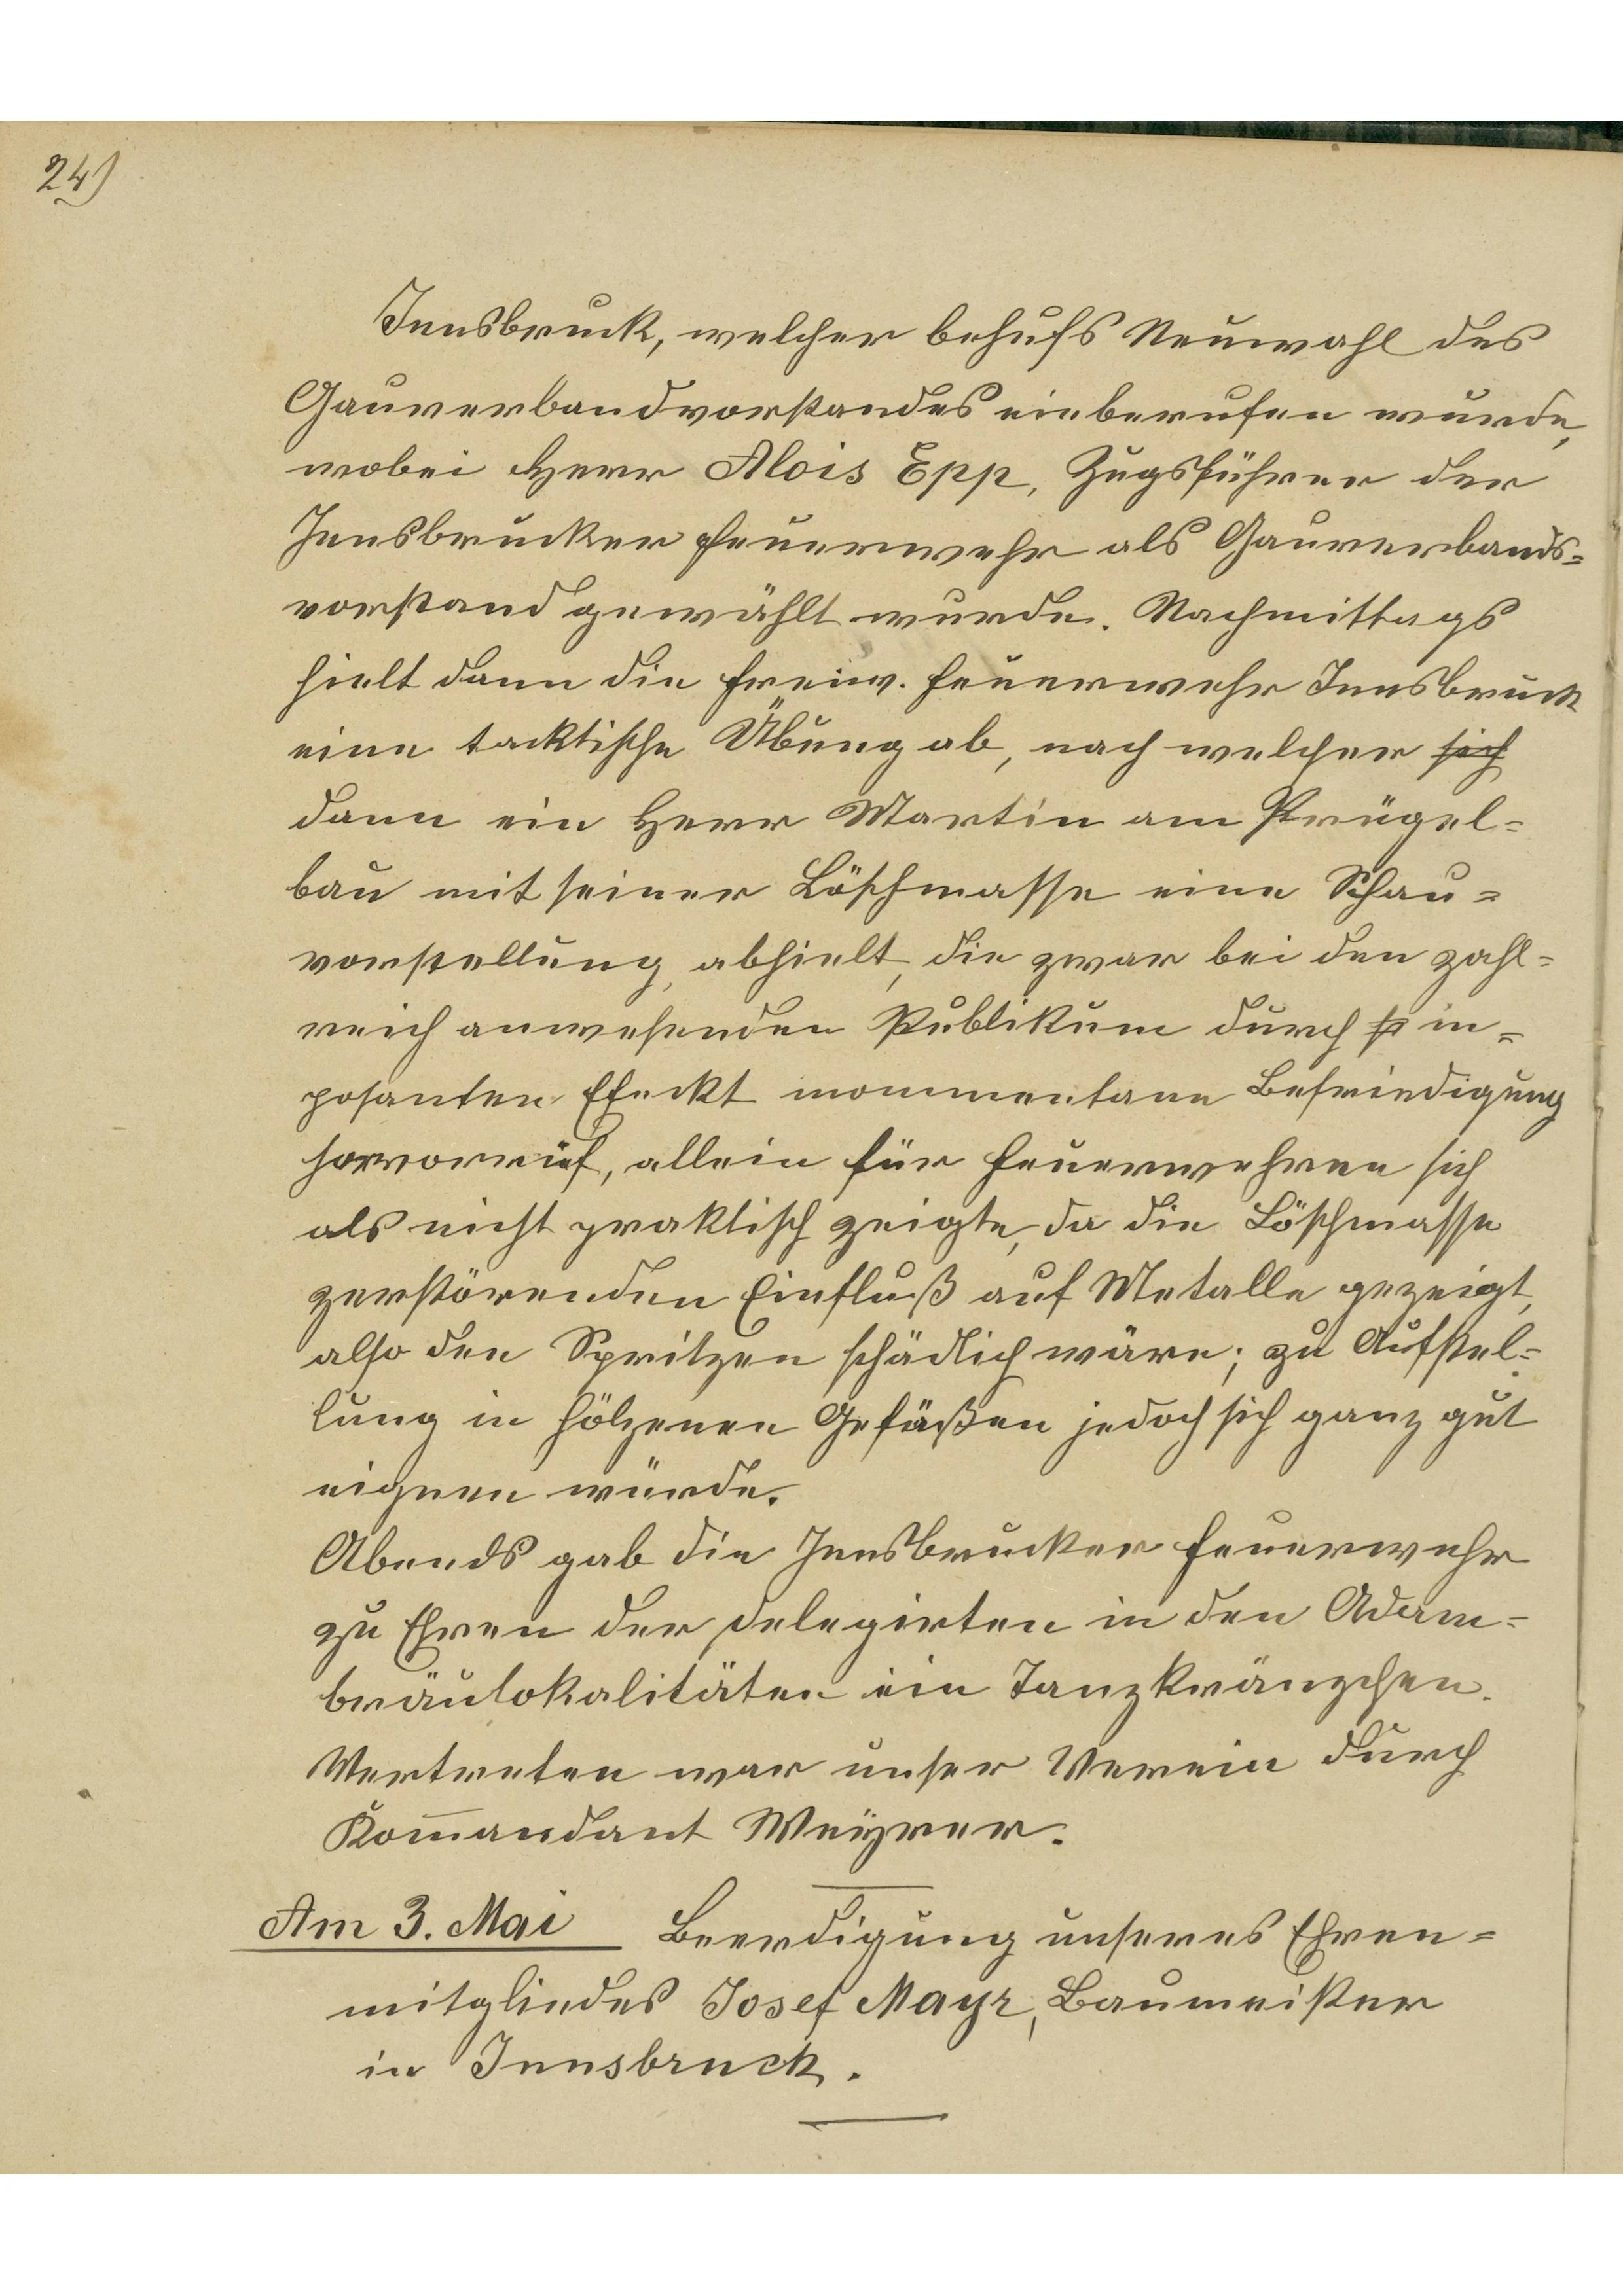 24)
Innsbruck, welcher behufs Neuwahl des
Gauverbandvorstandes einberufen wurde,
wobei Herr Alois Epp, Zugsführer der
Innsbrucker Feuerwehr als Gauverbands=
vorstand gewählt wurde. Nachmittags
hielt dann die freiw. Feuerwehr Innsbruck
eine tacktische Übung ab, nach welcher sich
dann ein Herr Martin am Prügel=
bau mit seiner Löschmasse eine Schau=
vorstellung, abhielt, die zwar bei den zahl=
reich anwesenden Publikum durch in=
posanten Efeckt mommentane Befriedigung
horvorrief, allein für Feuerwehren sich
als nicht praktisch zeigte, da die Löschmasse
zerstörenden Einfluß auf Metalle gezeigt,
also den Spritzen schädlich wäre; zu Aufstel=
lung in hölzenen Gefäßen jedoch sich ganz gut
eignen würde.
Abends gab die Innsbrucker Feuerwehr
zu Ehren der Delegirten in den Adam=
bräulokalitäten ein Tanzkränzchen.
Vertreten war unser Verein durch
Kom̅andant Weÿrer.
Am 3. Mai Beerdigung unseres Ehren=
mitgliedes Josef Mayr, Baumeister
in Innsbruck.